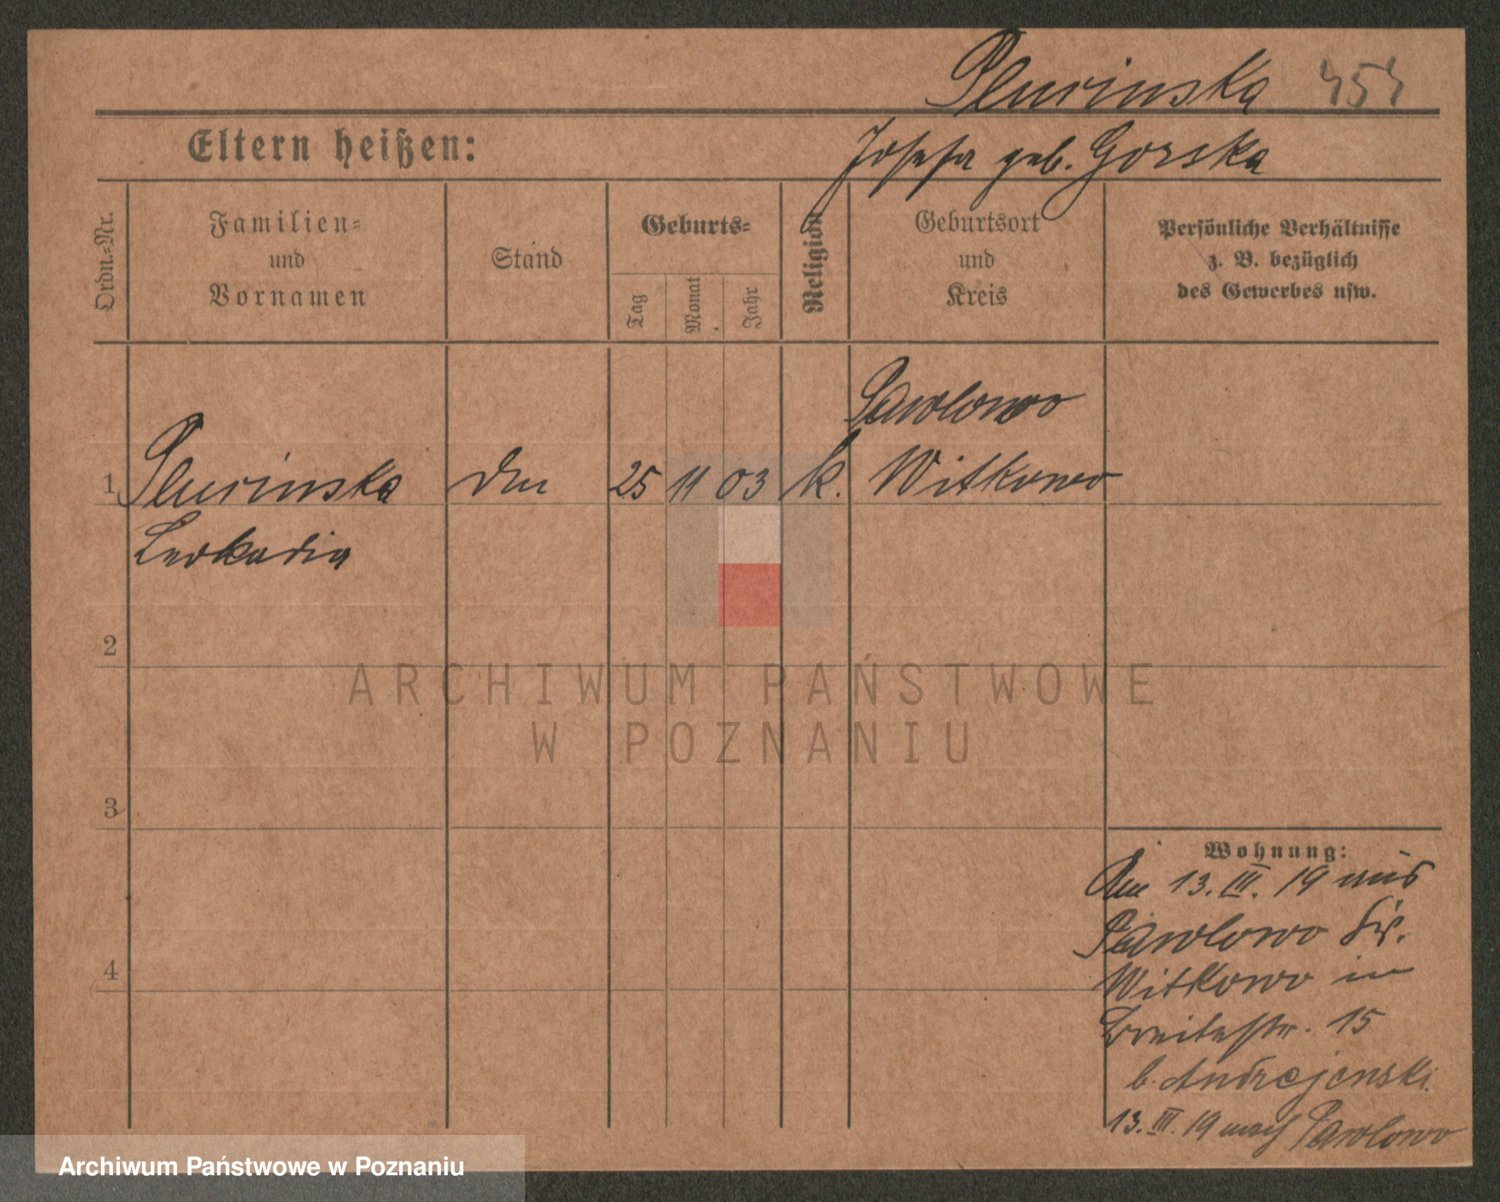 Plucinska 454
Eltern heißen:
Josefa geb. Gorska
Ordn.-Nr.
Familien-
und
Vornamen
Stand
Geburts-
Tag
Monat
Jahr
Religion
Geburtsort
und
Kreis
Persönliche Verhältnisse
z. B. bezüglich
des Gewerbes usw.
Pawlowo
1 Plucinska 25 11 03 k. Witkowo
Leokadia
2
3
4
ARCHIWUM PAŃSTWOWE
W POZNANIU
Wohnung:
Am 13. III. 19 aus
Pawlowo Kr.
Witkowo in
Breitestr. 15
b. Andrzejewski
13. III. 19 nach Pawlowo
Archiwum Państwowe w Poznaniu